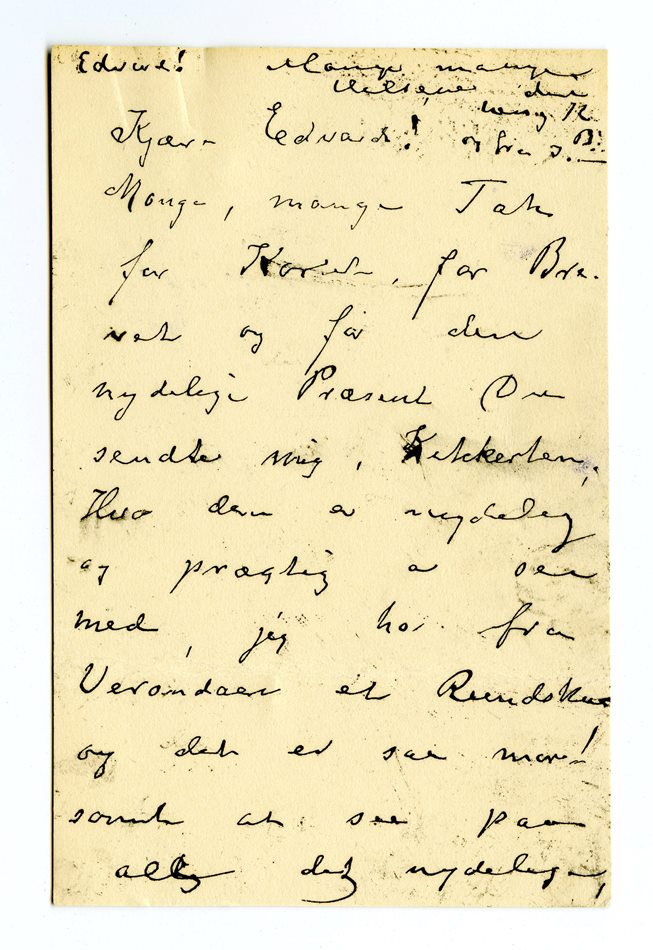 Edvard! Mange mange
Hilsener den
og fra J. B.
Kjære Edvard!
Mange, mange Tak
for Kortet, for Bre-
vet og for den
nydelige Præsent Du
sendte mig, Kikkerten,
Hvor den er nydelig
og prægtig a see
med, jeg har fra
Verandaen et Rundskue
og det er saa mor-
somt at see paa
alt det nydelige,